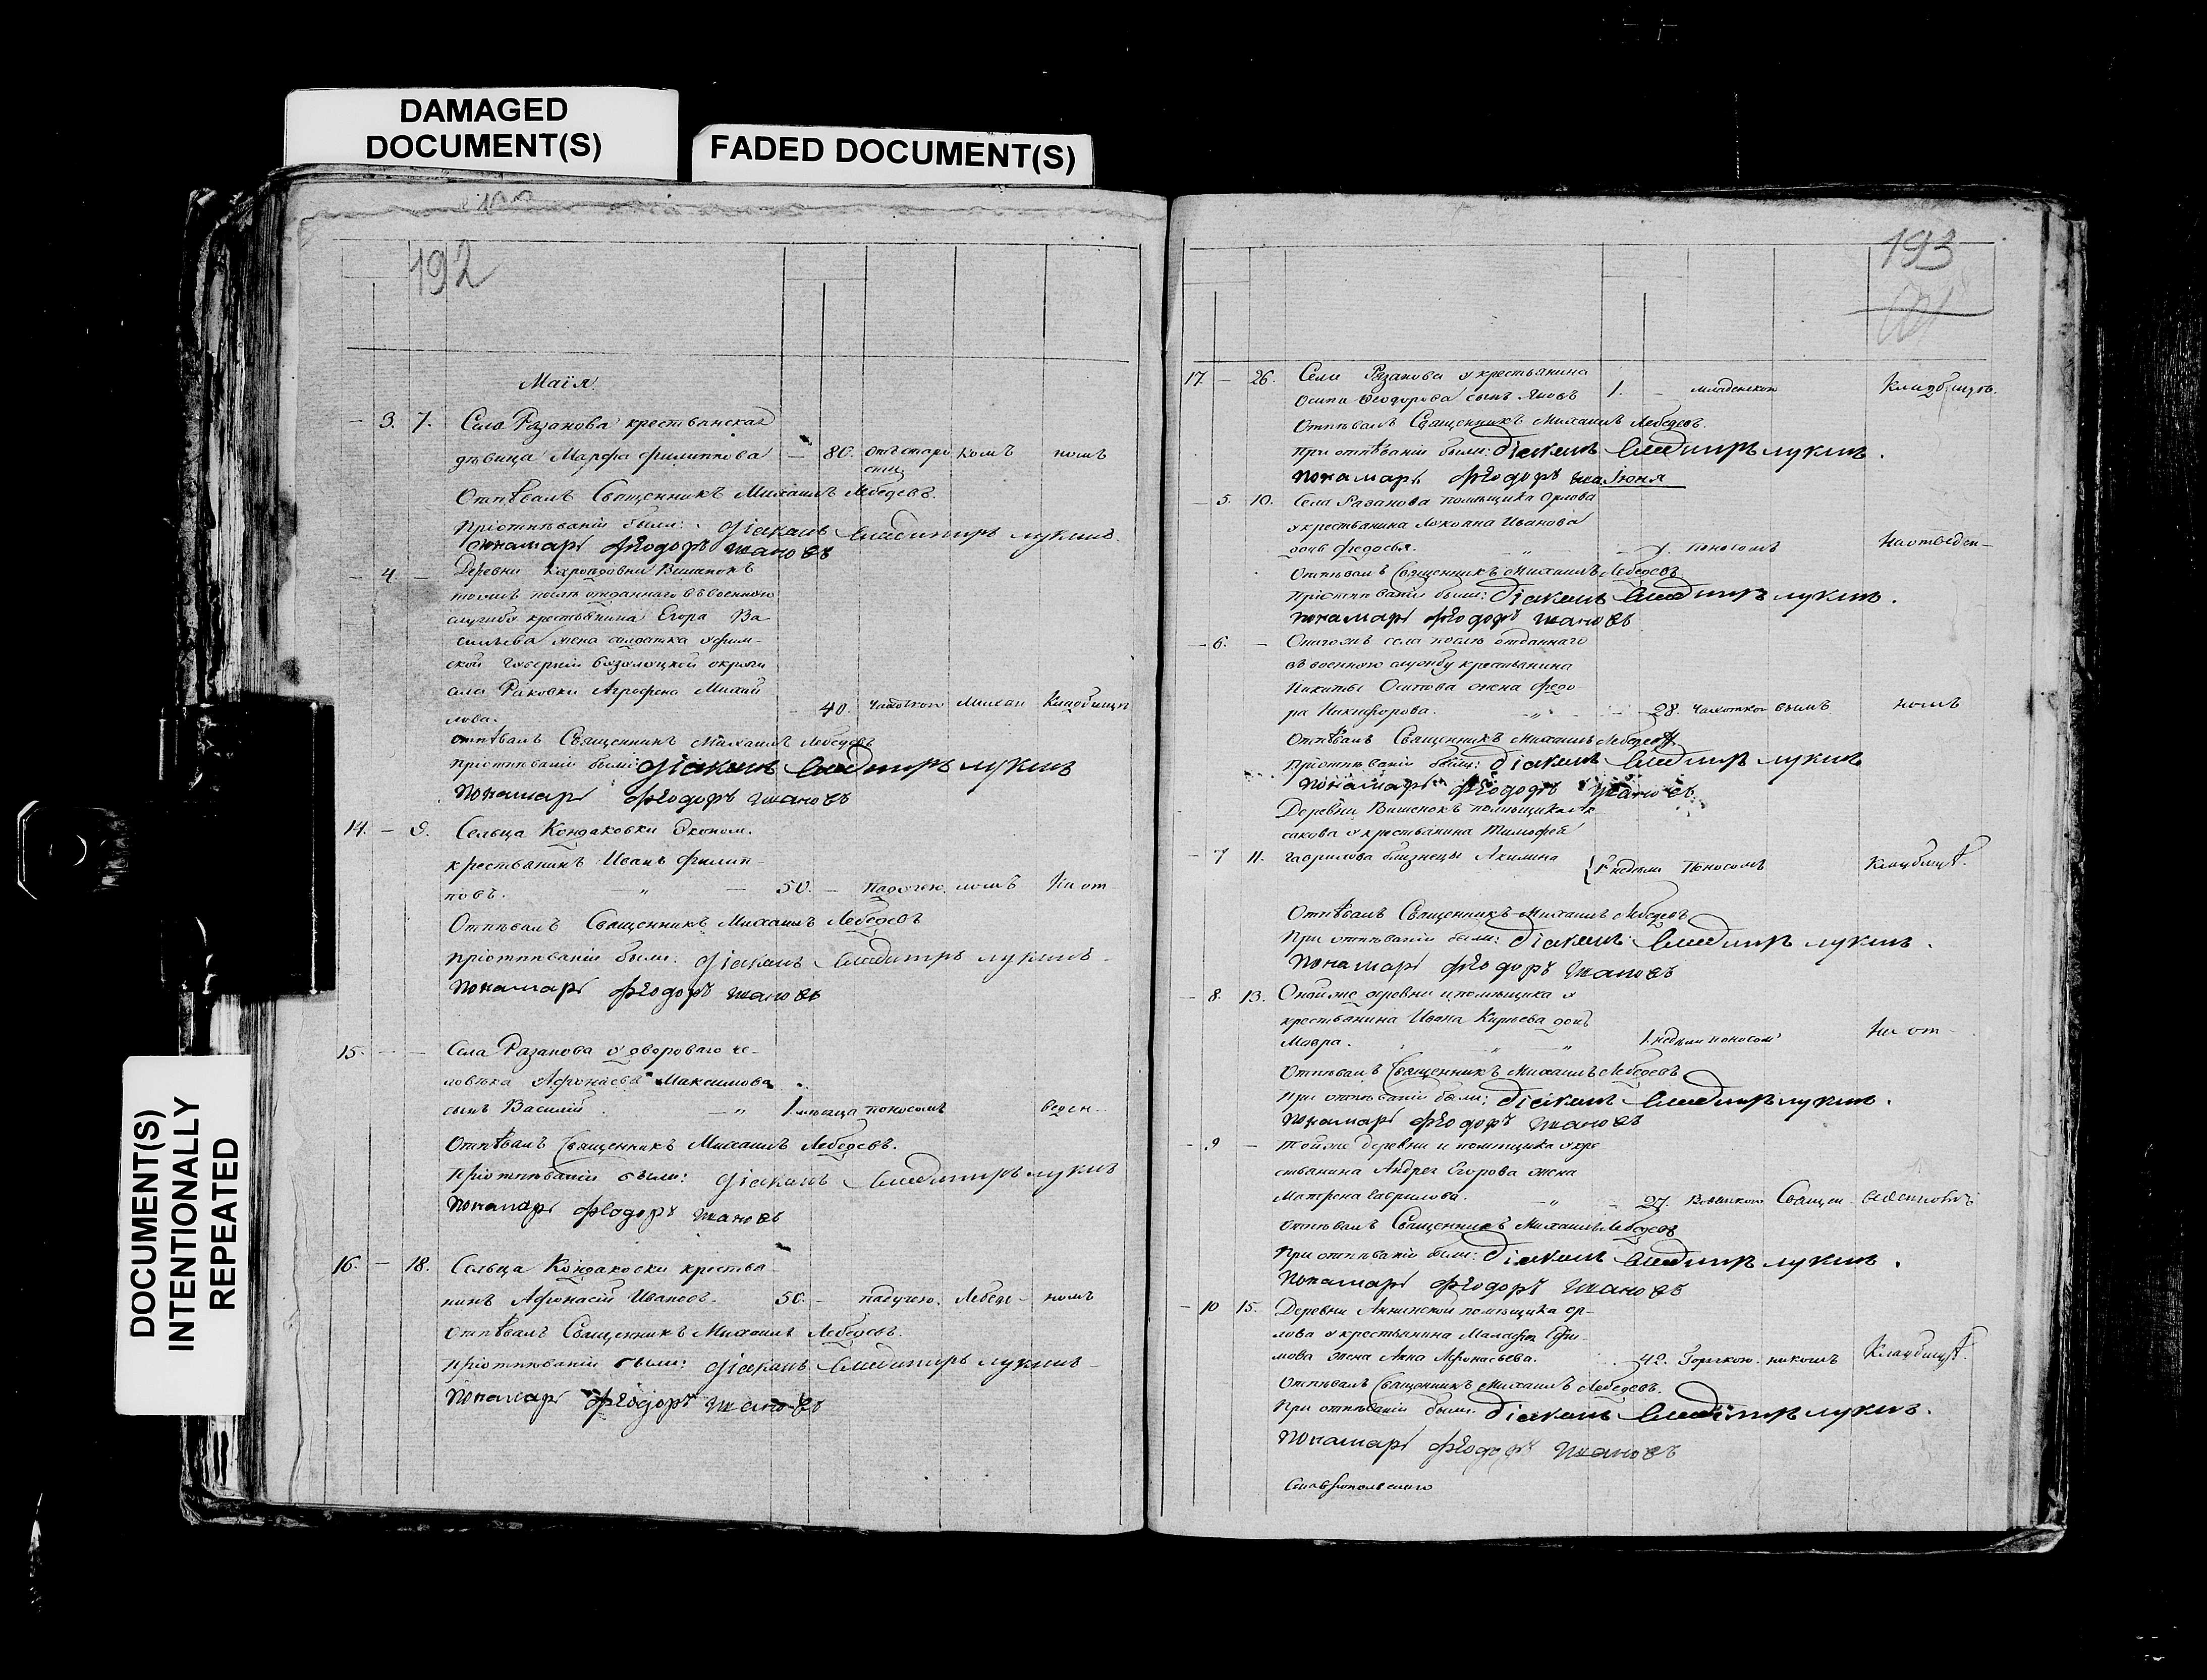 DAMAGED
DOCUMENT(S)
FADED DOCUMENT(S)
192
Маія
3. 7. Села Рязанова крестьянская
дѣвица Марфа Филиппова — 80. отъ старо комъ номъ
сти
Отпѣвалъ Священникъ Михаилъ Лебедевъ.
При отпѣваніи были: Діаконъ Владимиръ Лукинъ.
Понамарь Ѳеодоръ Ивановъ
4 — Деревни Вишенокъ
послѣ отданнаго въ военную
службу крестьянина Егора Ва
сильева жена солдатка
ской губерніи округи
села Раковки Агрофена Михай
лова. — 40. Чахоткою Михаи Кладбищѣ
отпѣвалъ Священникъ Михаилъ Лебедевъ
При отпѣваніи были: Діаконъ Владимиръ Лукинъ
Понамарь Ѳеодоръ Ивановъ
14. — 9. Сельца Кондаковки Эконом.
крестьянинъ Иванъ Филип-
повъ. „ — 50. — Падучею ломъ На от-
Отпѣвалъ Священникъ Михаилъ Лебедевъ
При отпѣваніи были: Діаконъ Владимиръ Лукинъ
Понамарь Ѳеодоръ Ивановъ
15. — — Села Рязанова у двороваго че-
ловѣка Афонасья Максимова
сынъ Василій. — „ 1 мѣсяца поносомъ веден-
Отпѣвалъ Священникъ Михаилъ Лебедевъ.
При отпѣваніи были: Діаконъ Владимиръ Лукинъ
Понамарь Ѳеодоръ Ивановъ
16. — 18. Сельца Кондаковки крестья
нинъ Афонасій Ивановъ. 50. — падучею. Лебеде- номъ
Отпѣвалъ Священникъ Михаилъ Лебедевъ.
При отпѣваніи были: Діаконъ Владимиръ Лукинъ
Понамарь Ѳеодоръ Ивановъ
DOCUMENT(S)
INTENTIONALLY
REPEATED
193
17. — 26. Села Рязанова у крестьянина
Осипа Ѳеодорова сынъ Яковъ 1. — младенскою Кладбищѣ.
Отпѣвалъ Священникъ Михаилъ Лебедевъ.
При отпѣваніи были: Діаконъ Владимиръ Лукинъ.
Понамарь Ѳеодоръ Июня
5. 10. Села Рязанова помѣщика Орлова
у крестьянина Иванова
дочь Федосья. „ — 1. поносомъ На отведен-
Отпѣвалъ Священникъ Михаилъ Лебедевъ
При отпѣваніи были: Діаконъ Владимиръ Лукинъ.
Понамарь Ѳеодоръ Ивановъ
6. — Онагожъ села послѣ отданнаго
въ военную службу крестьянина
Никиты Осипова жена Федо
ра Никифорова. „ — 28. Чахоткою вымъ номъ
Отпѣвалъ Священникъ Михаилъ Лебедевъ
При отпѣваніи были: Діаконъ Владимиръ Лукинъ
Понамарь Ѳеодоръ Ивановъ
Деревни Вишенокъ помѣщика
сакова у крестьянина Тимофея
7 11. Гаврилова близнецы Акилина { 1 недѣли Поносомъ Кладбищѣ.
Отпѣвалъ Священникъ Михаилъ Лебедевъ
При отпѣваніи были: Діаконъ Владимиръ Лукинъ.
Понамарь Ѳеодоръ Ивановъ
8. 13. Онойже деревни и помѣщика у
крестьянина Ивана Кирѣева дочь
Мавра. „ „ 1. недѣли поносомъ На от-
Отпѣвалъ Священникъ Михаилъ Лебедевъ
При отпѣваніи были: Діаконъ Владимиръ Лукинъ.
Понамарь Ѳеодоръ Ивановъ
9 — тойже деревни и помѣщика у кре
стьянина Андрея Егорова жена
Матрена Гаврилова. „ — 27. Священ-
Отпѣвалъ Священникъ Михаилъ Лебедевъ
При отпѣваніи были: Діаконъ Владимиръ Лукинъ.
Понамарь Ѳеодоръ Ивановъ
10 15. Деревни Аннинской помѣщика ор-
лова у крестьянина Малафея Ефи-
мова жена Анна Афонасьева. 42. Горячкою никомъ Кладбищѣ.
Отпѣвалъ Священникъ Михаилъ Лебедевъ.
При отпѣваніи были Діаконъ Владимиръ Лукинъ.
Понамарь Ѳеодоръ Ивановъ
Ставропольскаго